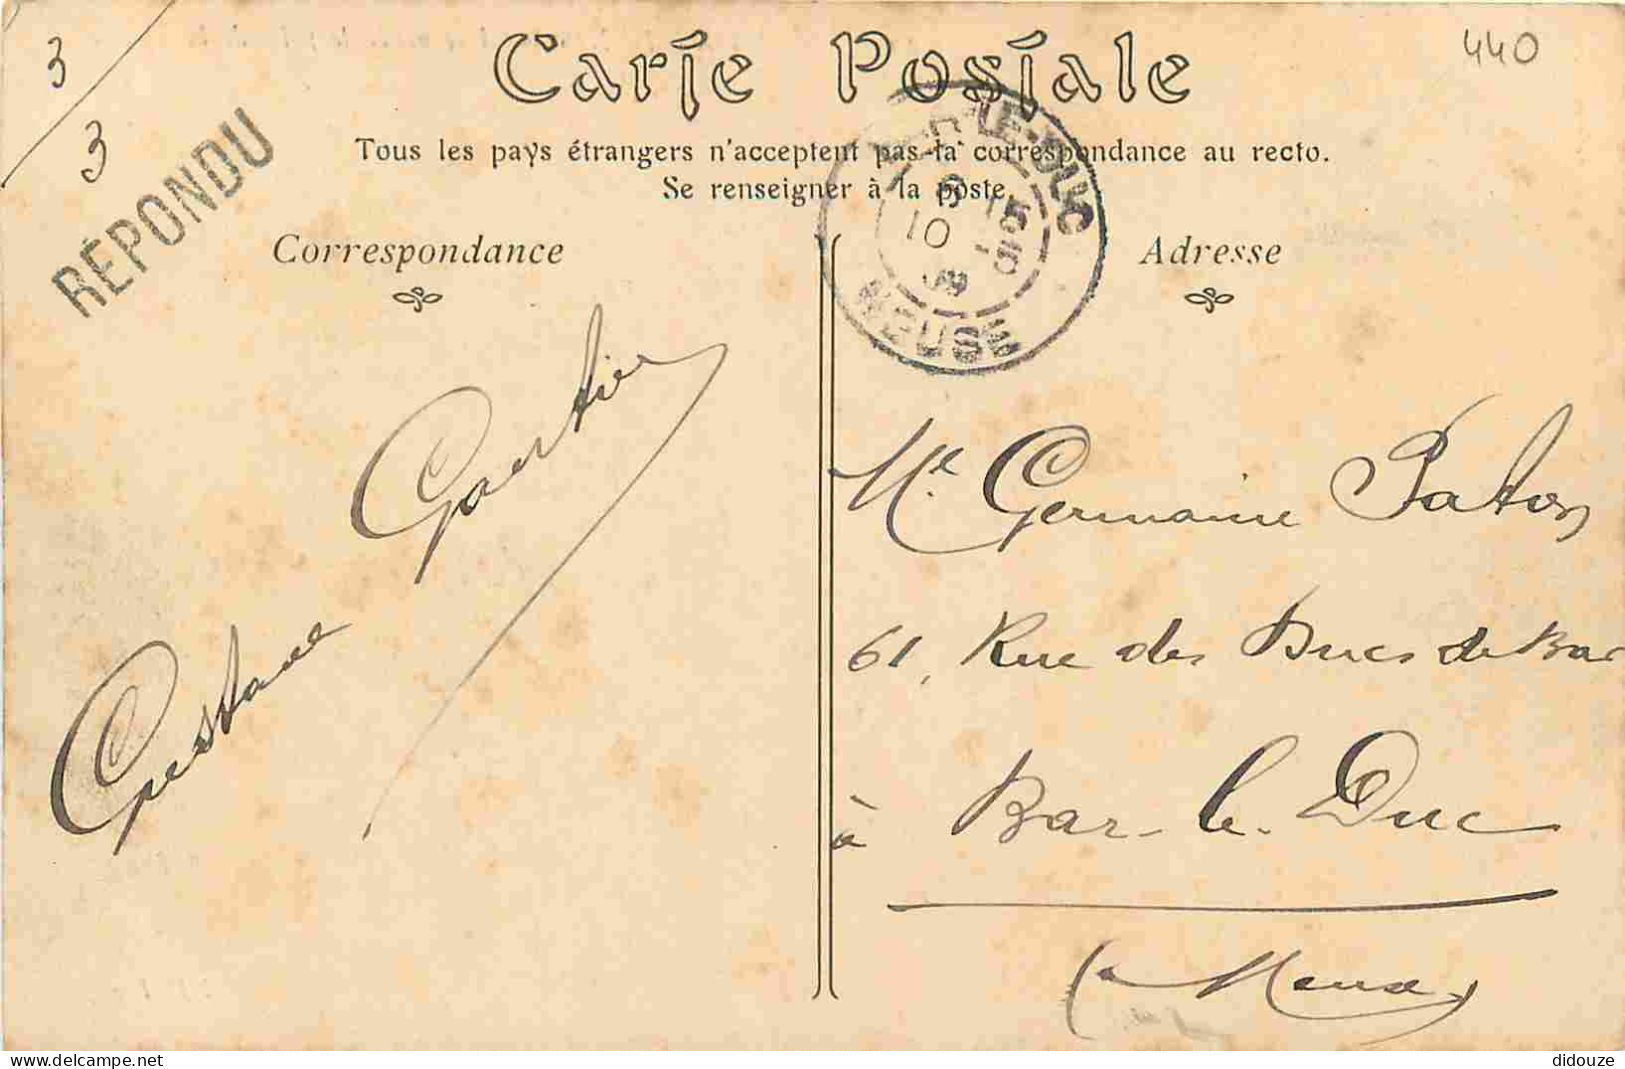 3
3
440
RÉPONDU
Carte Postale
Tous les pays étrangers n'acceptent pas la correspondance au recto.
Se renseigner à la poste.
BAR-LE-DUC
MEUSE
Correspondance
Adresse
Gaertier
Mlle Germaine Paton
61, Rue des Ducs de Bar
à Bar-le-Duc
(Meuse)
delcampe.net
didouze